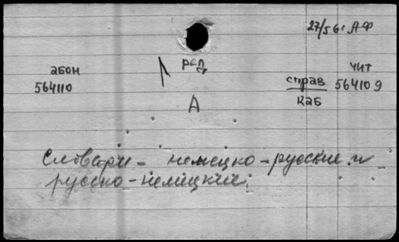 27/561 АФ
абон рел чит
564110 справ 564109
А каб
Словари - немецко-русские и
русско-немецкие